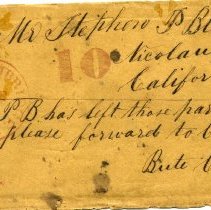 Mr Stephen P Bl
10
Nicolau
Califor
P. B has left those par
please forward to C
Bute C